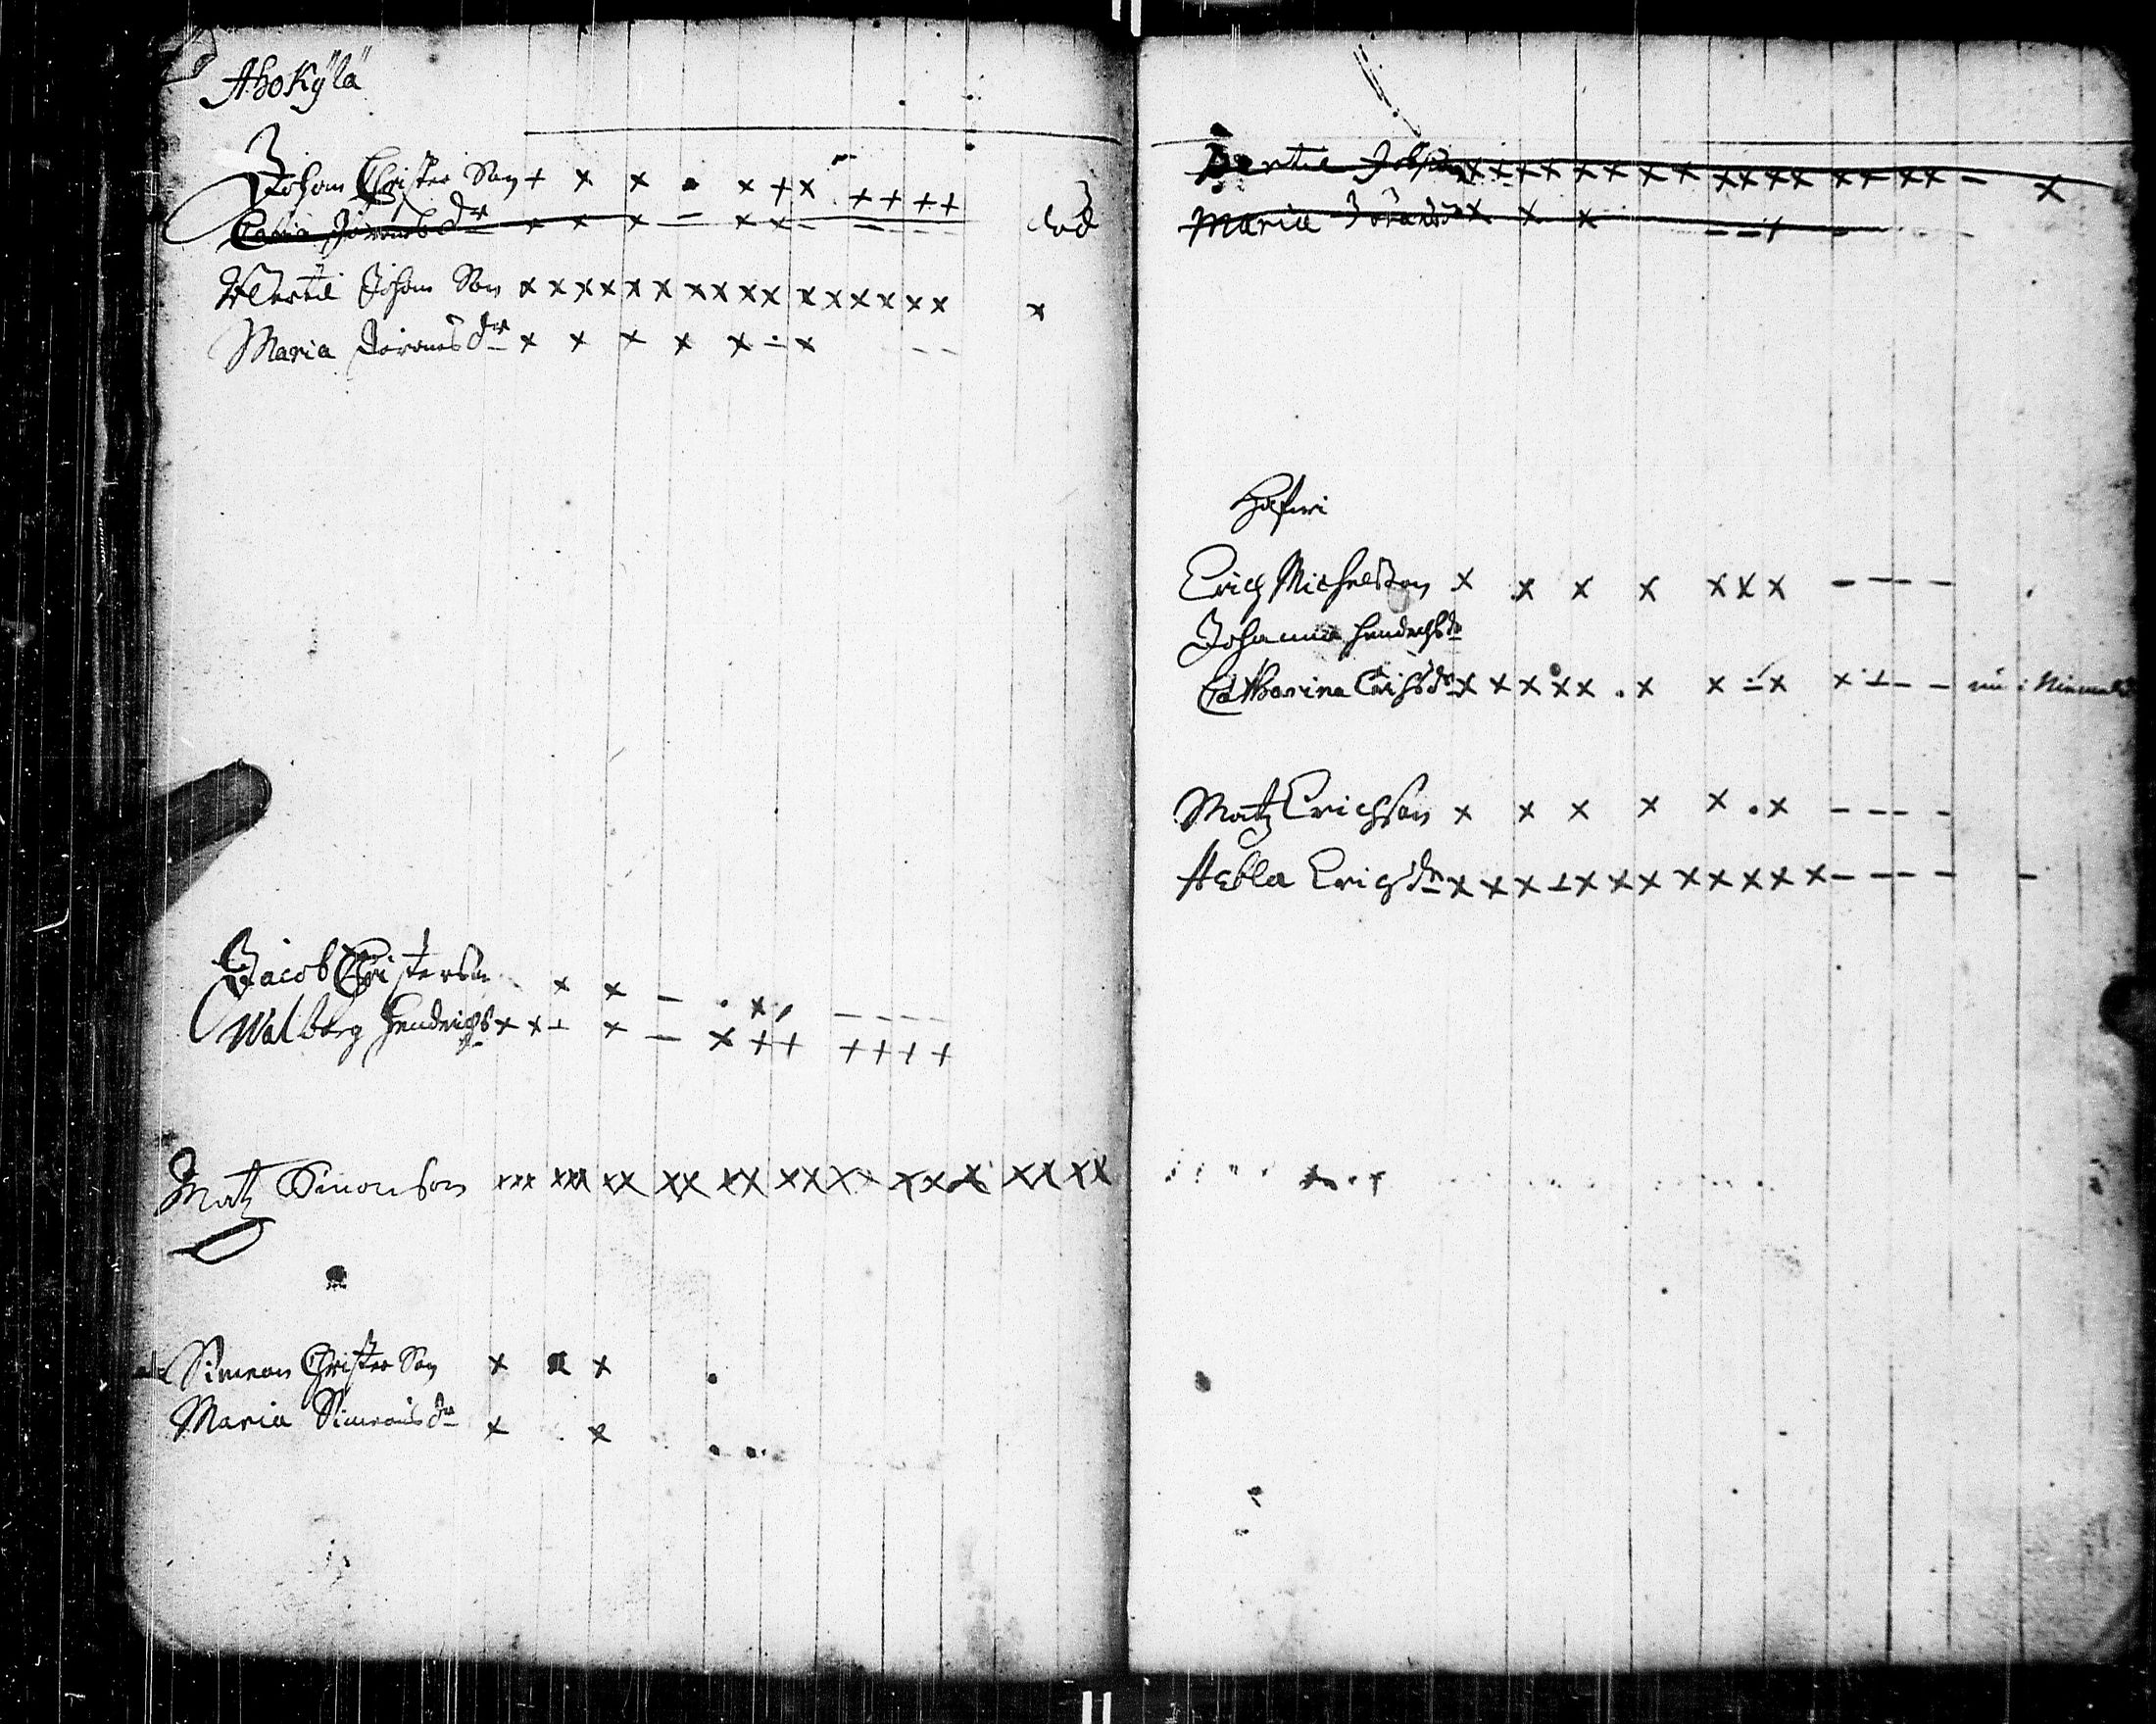 Ahokylä
Johan Christer Son + x x x + x + + + +
Jörans dr x x x — x x - död
Bertil Johan Son x x x x x x x x x x x x x x x x x
Maria Jörans dr x x x x x - x - -
Jacob Christerson x x — . x - - - -
Walborg Hendrichs dr x x x — x + + + + + +
Matz Simonson xxx xxx xx xx xx xx xx xxx xx xx
Simeon Christer Son x x x
Maria Simeons dr x x
Bertil Johan x x x x x x x x x x x x x x x x - x
Maria Jörans dr x x x - - -
Erich Michelson x x x x x x x - - - -
Johanna Hendrichs dr
Catharina Erichs dr x x x x x . x x - x x - - -
Matz Erichson x x x x x . x - - - -
Aebla Erigs dr x x x x x x x x x x x - - - - -